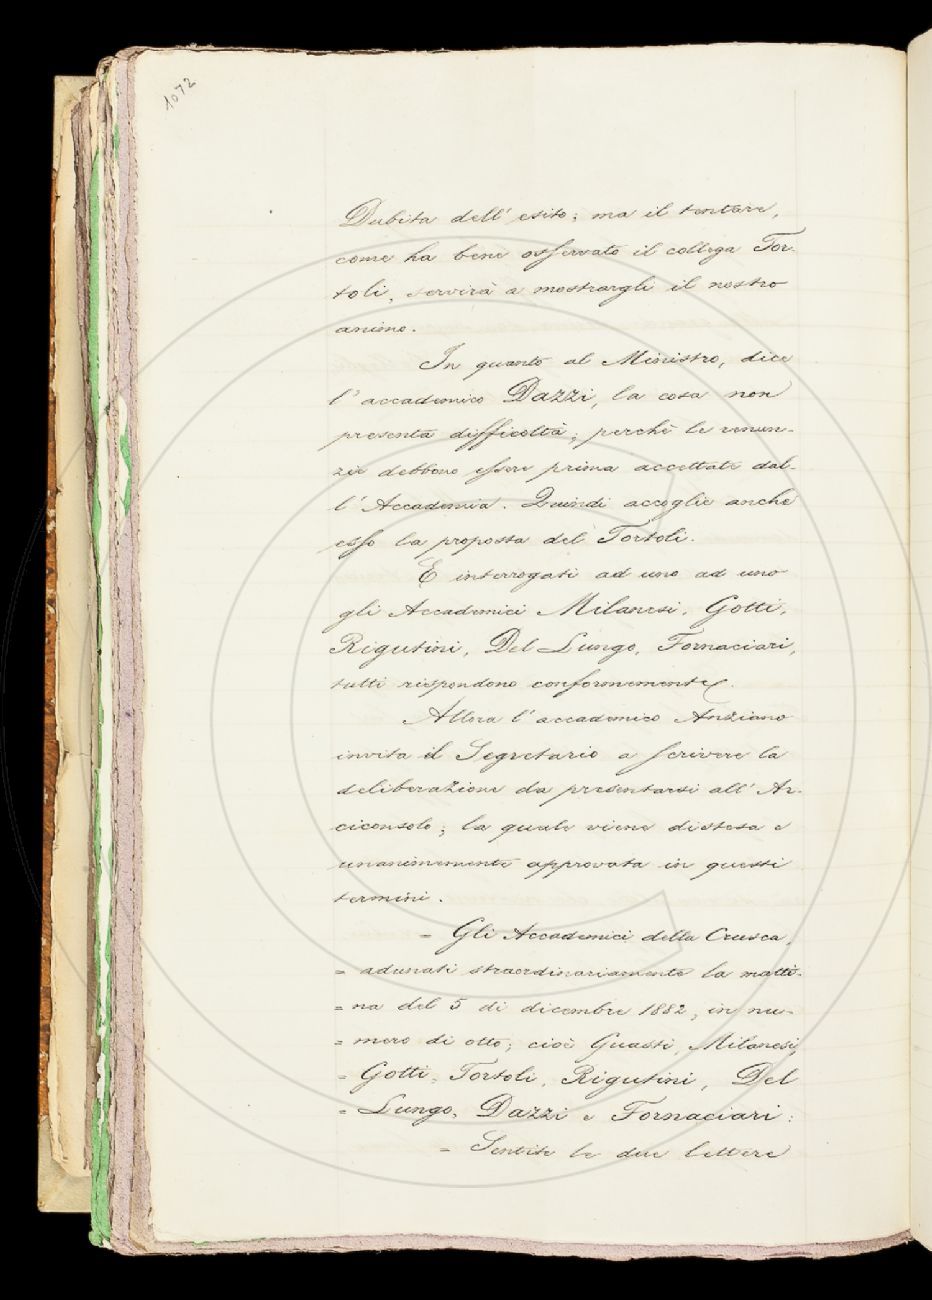 1072
Dubita dell' esito; ma il tentare,
come ha bene osservato il collega Tor-
toli, servirà a mostrargli il nostro
animo.
In quanto al Ministro, dice
l' accademico Dazzi, la cosa non
presenta difficoltà; perchè le renun-
zie debbono essere prima accettate dal-
l' Accademia. Quindi accoglie anche
esso la proposta del Tortoli.
E interrogati ad uno ad uno
gli Accademici Milanesi, Gotti,
Rigutini, Del Lungo, Fornaciari,
tutti rispondono conformemente.
Allora l' accademico Anziano
invita il Segretario a scrivere la
deliberazione da presentarsi all' Ar-
ciconsolo; la quale viene distesa e
unanimemente approvata in questi
termini.
= Gli Accademici della Crusca,
= adunati straordinariamente la matti-
= na del 5 di dicembre 1882, in nu-
= mero di otto; cioè Guasti, Milanesi,
= Gotti, Tortoli, Rigutini, Del
= Lungo, Dazzi e Fornaciari:
= Sentite le due lettere